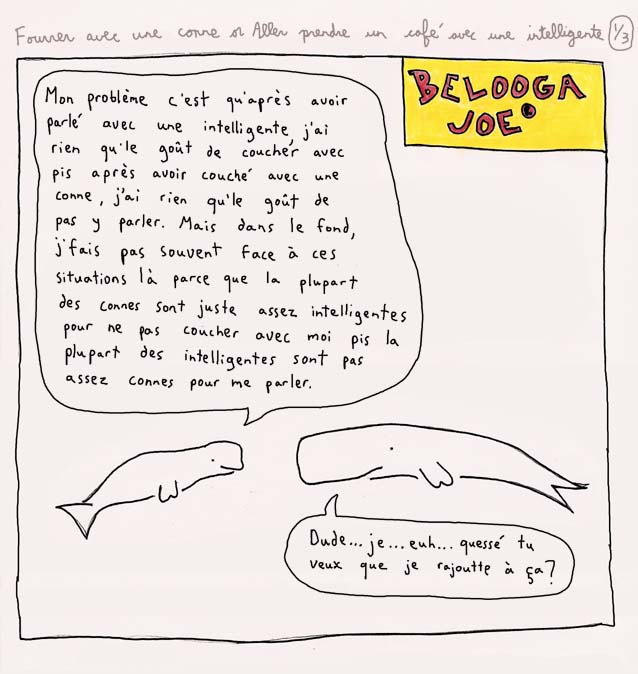 Fourrer avec une conne or Aller prendre un café avec une intelligente 1/3
BELOOGA
JOE
Mon problème c'est qu'après avoir
parlé avec une intelligente, j'ai
rien qu'le goût de coucher avec
pis après avoir couché avec une
conne, j'ai rien qu'le goût de
pas y parler. Mais dans le fond,
j'fais pas souvent face à ces
situations là parce que la plupart
des connes sont juste assez intelligentes
pour ne pas coucher avec moi pis la
plupart des intelligentes sont pas
assez connes pour me parler.
Dude... je... euh... quessé tu
veux que je rajoutte à ça?